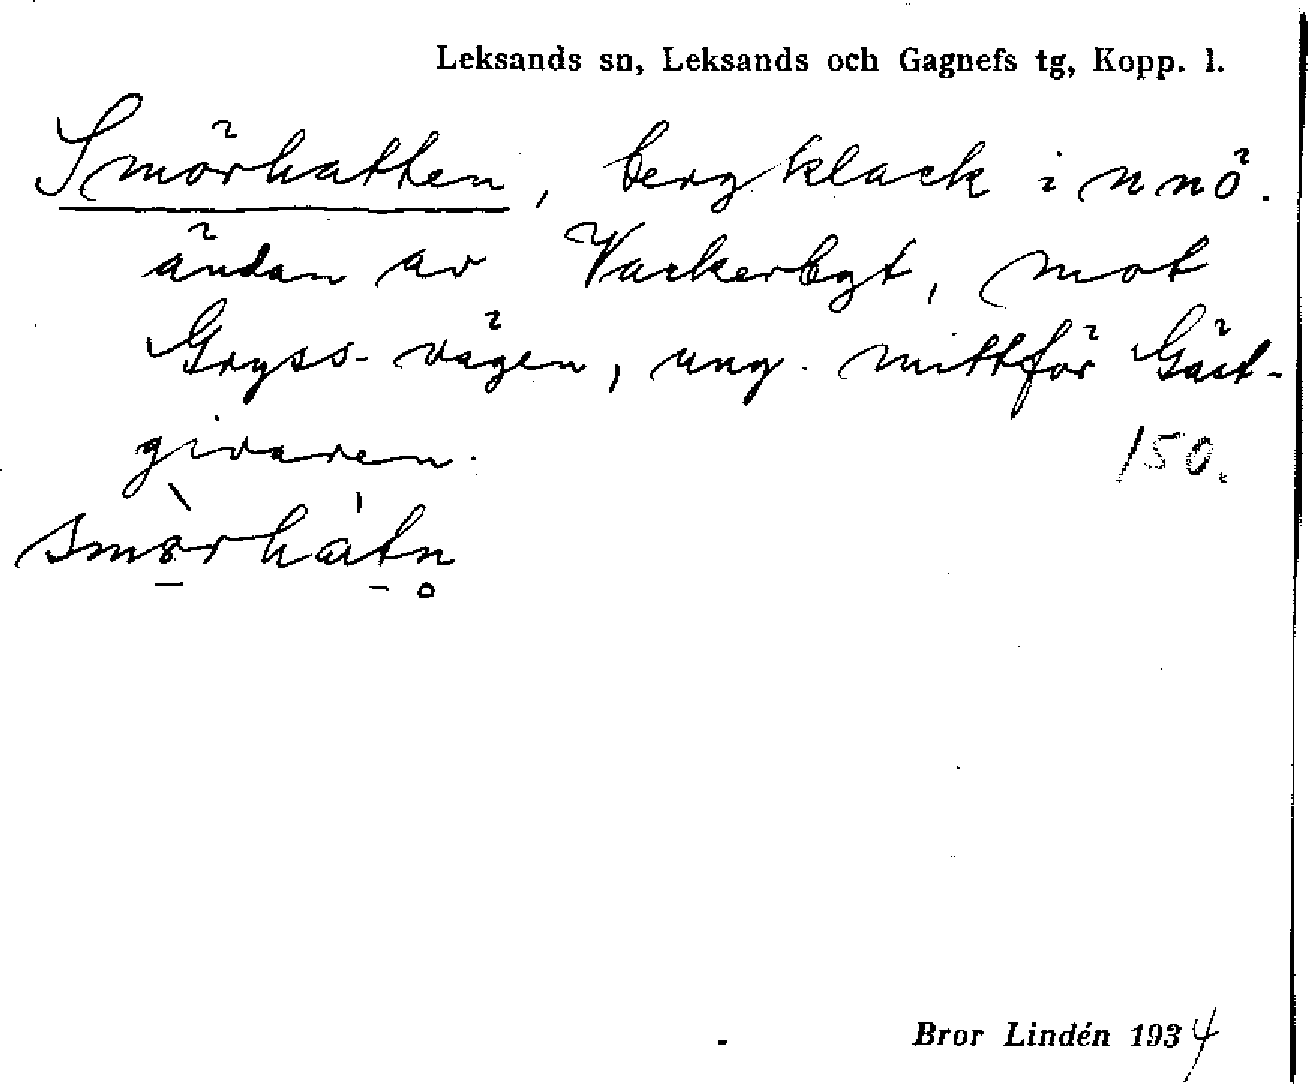 Leksands sn, Leksands och Gagnefs tg, Kopp. l.
Smörhatten, bergklack i nnö.
ändan av Vackerbyt, mot
Gryss-vägen, ung. mittför Gäst-
givaren.
150.
smö̀rhátn̥
Bror Lindén 1934